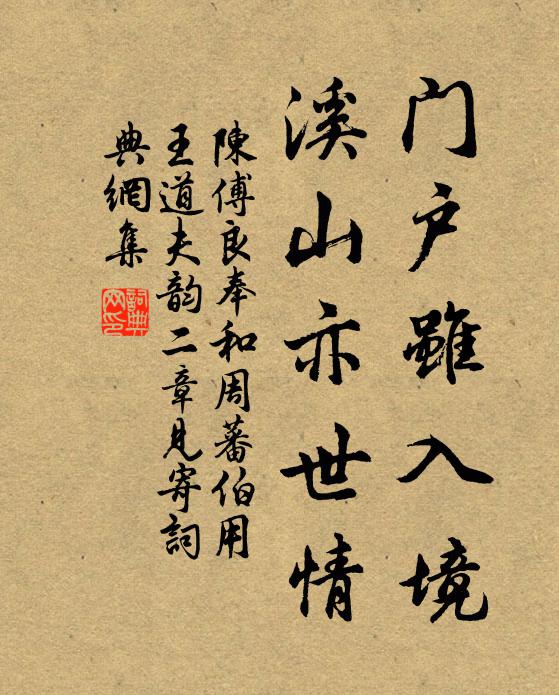 门户雖入境
溪山亦世情
陳傅良奉和周蕃伯用
王道夫韵二章見寄詞
典網集
詞典
网印